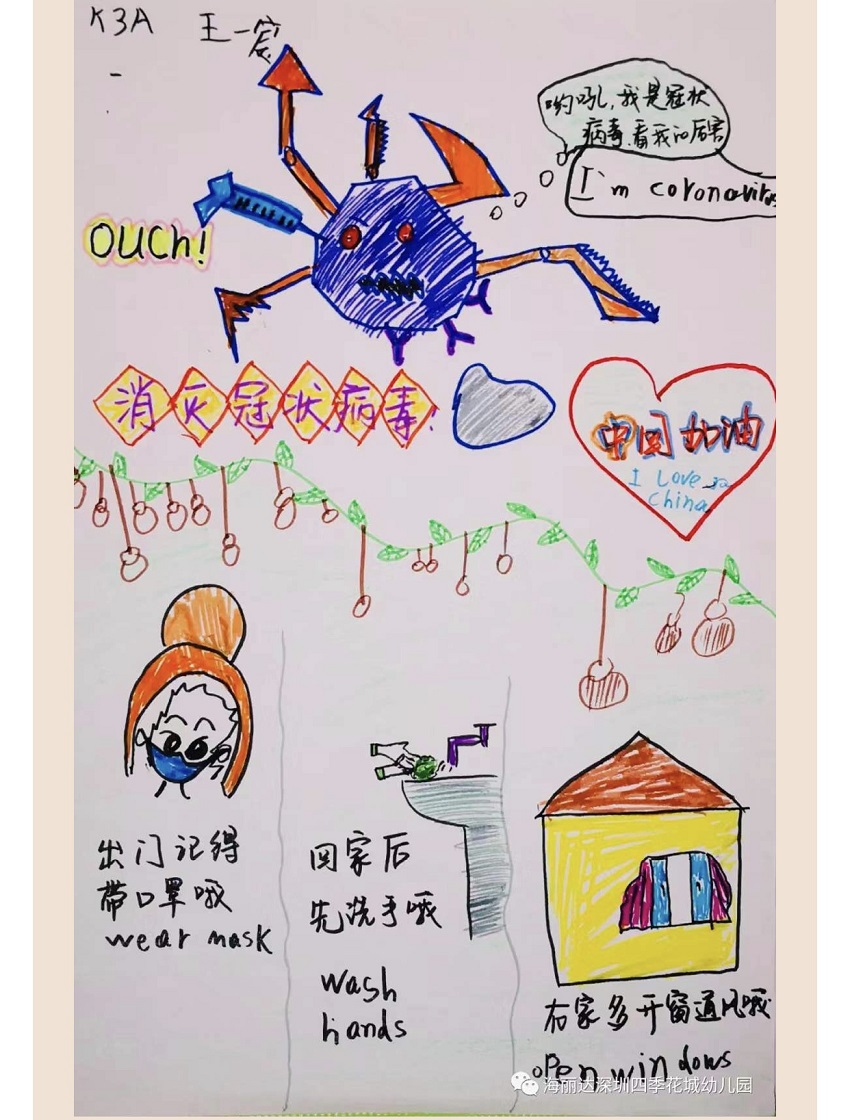 K3A 王一宸
哟吼,我是冠状
病毒.看我的厉害
I'm coronavirus
OUCh!
消灭冠状病毒!
中国加油
I Love
China
出门记得
带口罩哦
wear mask
回家后
先洗手哦
wash
hands
右家多开窗通风哦
open windows
海丽达深圳四季花城幼儿园